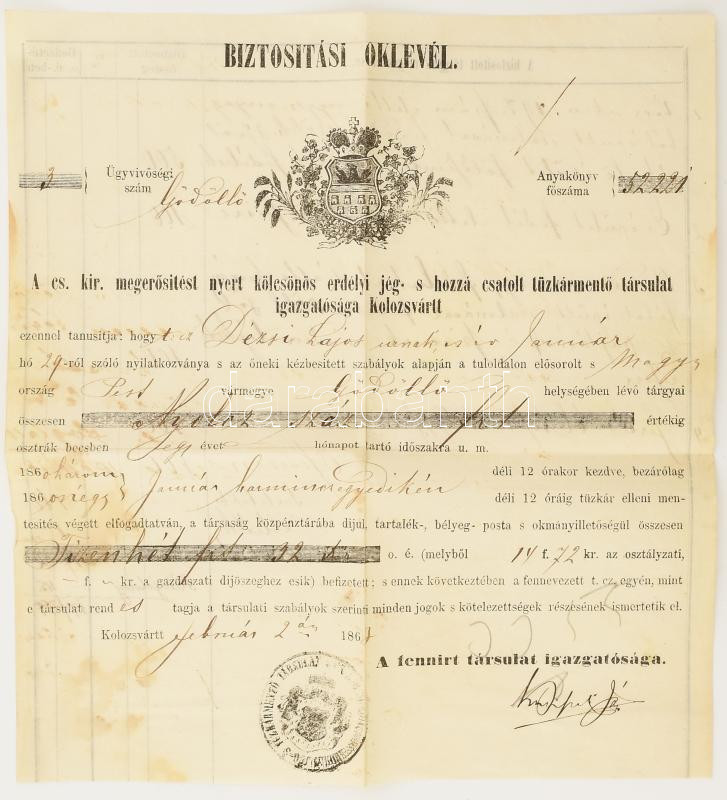 BIZTOSITÁSI OKLEVÉL.
3 Ügyvivőségi szám Gödöllő
Anyakönyv főszáma 52221
A cs. kir. megerősitést nyert kölcsönös erdélyi jég- s hozzá csatolt tüzkármentő társulat
igazgatósága Kolozsvártt
ezennel tanusitja: hogy t cz Dézsi Lajos urnak Január
hó 29-ről szóló nyilatkozványa s az öneki kézbesitett szabályok alapján a tuloldalon elősorolt s Magyar
ország Pest vármegye Gödöllő helységében lévő tárgyai
összesen száz frt értékig
osztrák becsben egy évet hónapot tartó időszakra u. m.
186 déli 12 órakor kezdve, bezárólag
186 Január harmincegyedikén déli 12 óráig tüzkár elleni men-
tesités végett elfogadtatván, a társaság közpénztárába dijul, tartalék-, bélyeg- posta s okmányilletőségül összesen
Tizenhét frt 32 kr o. é. (melyből 14 f. 72 kr. az osztályzati,
– f. – kr. a gazdászati dijöszeghez esik) befizetett; s ennek következtében a fennevezett t. cz. egyén, mint
e társulat rend es tagja a társulati szabályok szerint minden jogok s kötelezettségek részésének ismertetik el.
Kolozsvártt február 2 án 186
A fennirt társulat igazgatósága.
darabanth